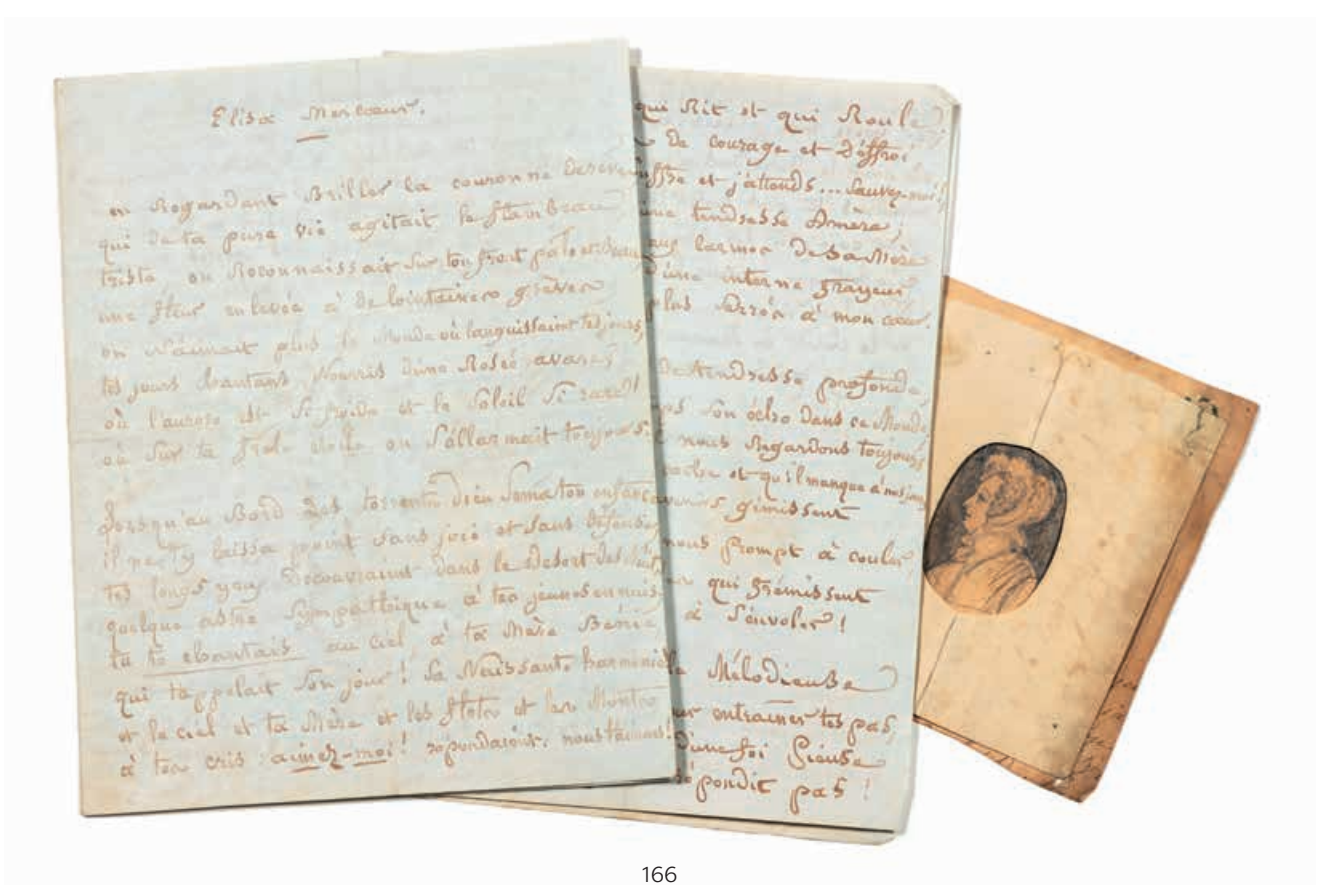 Elisa Mercœur.
en Regardant Briller la couronne de rêves
qui de ta pure vie agitait le flambeau,
triste, on Reconnaissait sur ton front pâle et beau
une fleur enlevée à de lointaines grèves
on n'aimait plus le Monde où languissaient tes jours,
tes jours chantans Nourris d'une Rosée avare,
où l'aurore est si froide et le Soleil si rare !
où sur ta frêle étoile on s'allarmait toujours.
Lorsqu'au Bord des torrents dieu sema ton enfance
il ne t'y laissa point sans joie et sans défense
tes longs yeux Découvraient dans le Desert des
quelque astre Sympathique à tes jeunes ennuis
tu te chantais au ciel, à ta Mère Bénie
qui t'appelait son jour ! Sa Naissante harmonie
et le ciel et ta Mère et les flots et les Monts
à tes cris : aimez-moi ! répondaient, nous t'aimons !
qui Rit et qui Roule
de courage et D'effroi
et j'attends... Sauvez-moi !
une tendresse Amère,
aux larmes De Sa Mère
D'une interne frayeur,
plus serrés à mon cœur.
De tendresse profonde
son écho Dans ce Monde,
nous Regardons toujours
et qu'il manque à nos jours
gémissent
nous prompt à couler,
qui frémissent
à S'envoler !
Mélodieuse
entraîner tes pas,
D'une foi Pieuse
répondit pas !
166